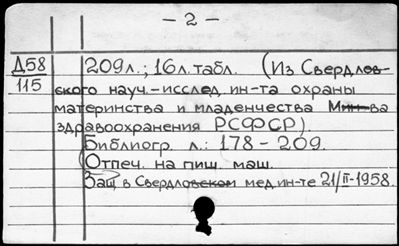 - 2 -
Д58 209л.; 16л.табл. (Из Свердлов-
115 ского науч.-исслед.ин-та охраны
материнства и младенчества Мин-ва
здравоохранения РСФСР).
Библиогр. л.: 178-209.
(Отпеч. на пиш. маш.
Защ в Свердловском мед.ин-те 21/II-1958.